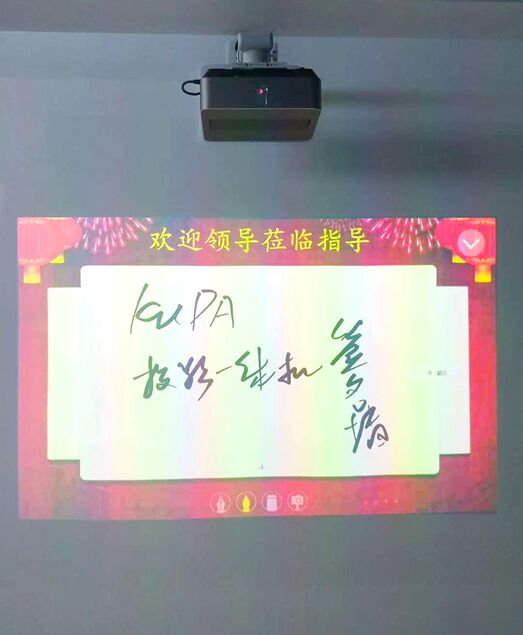 欢迎领导莅临指导
KUPA
投影一体机
4